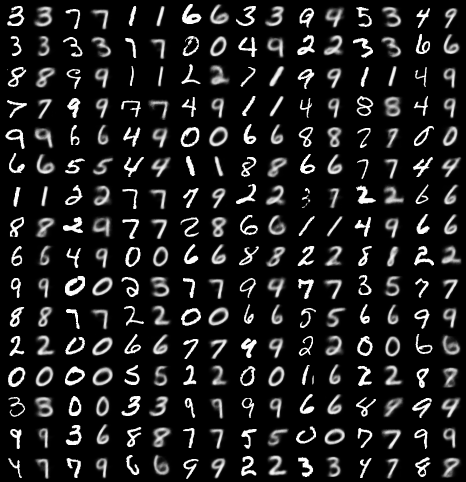 3 3 7 7 1 1 6 6 3 3 9 4 5 3 4 9
3 3 3 3 7 7 0 0 4 9 2 2 3 3 6 6
8 8 9 9 1 1 2 2 7 1 9 9 1 1 4 9
7 7 9 9 7 7 4 9 1 1 4 9 8 8 4 9
9 9 6 6 4 9 0 0 6 6 8 8 7 7 0 0
6 6 5 5 4 4 1 1 8 8 6 6 7 7 4 4
1 1 2 2 7 7 7 9 2 2 3 7 2 2 6 6
8 8 2 9 7 7 2 8 6 6 1 1 4 9 6 6
6 6 4 9 0 0 6 6 8 8 2 2 8 8 2 2
9 9 0 0 2 3 7 7 9 4 7 7 3 5 7 7
8 8 7 7 2 2 0 0 6 6 5 5 6 6 9 9
2 2 0 0 6 6 7 7 9 9 2 2 0 0 6 6
0 0 0 0 5 5 2 2 0 0 1 6 2 2 8 8
3 3 0 0 3 3 9 9 9 9 6 6 8 9 9 4
9 9 3 6 8 8 7 7 5 5 0 0 7 7 9 9
4 7 7 9 6 6 9 9 2 2 3 3 4 7 8 8